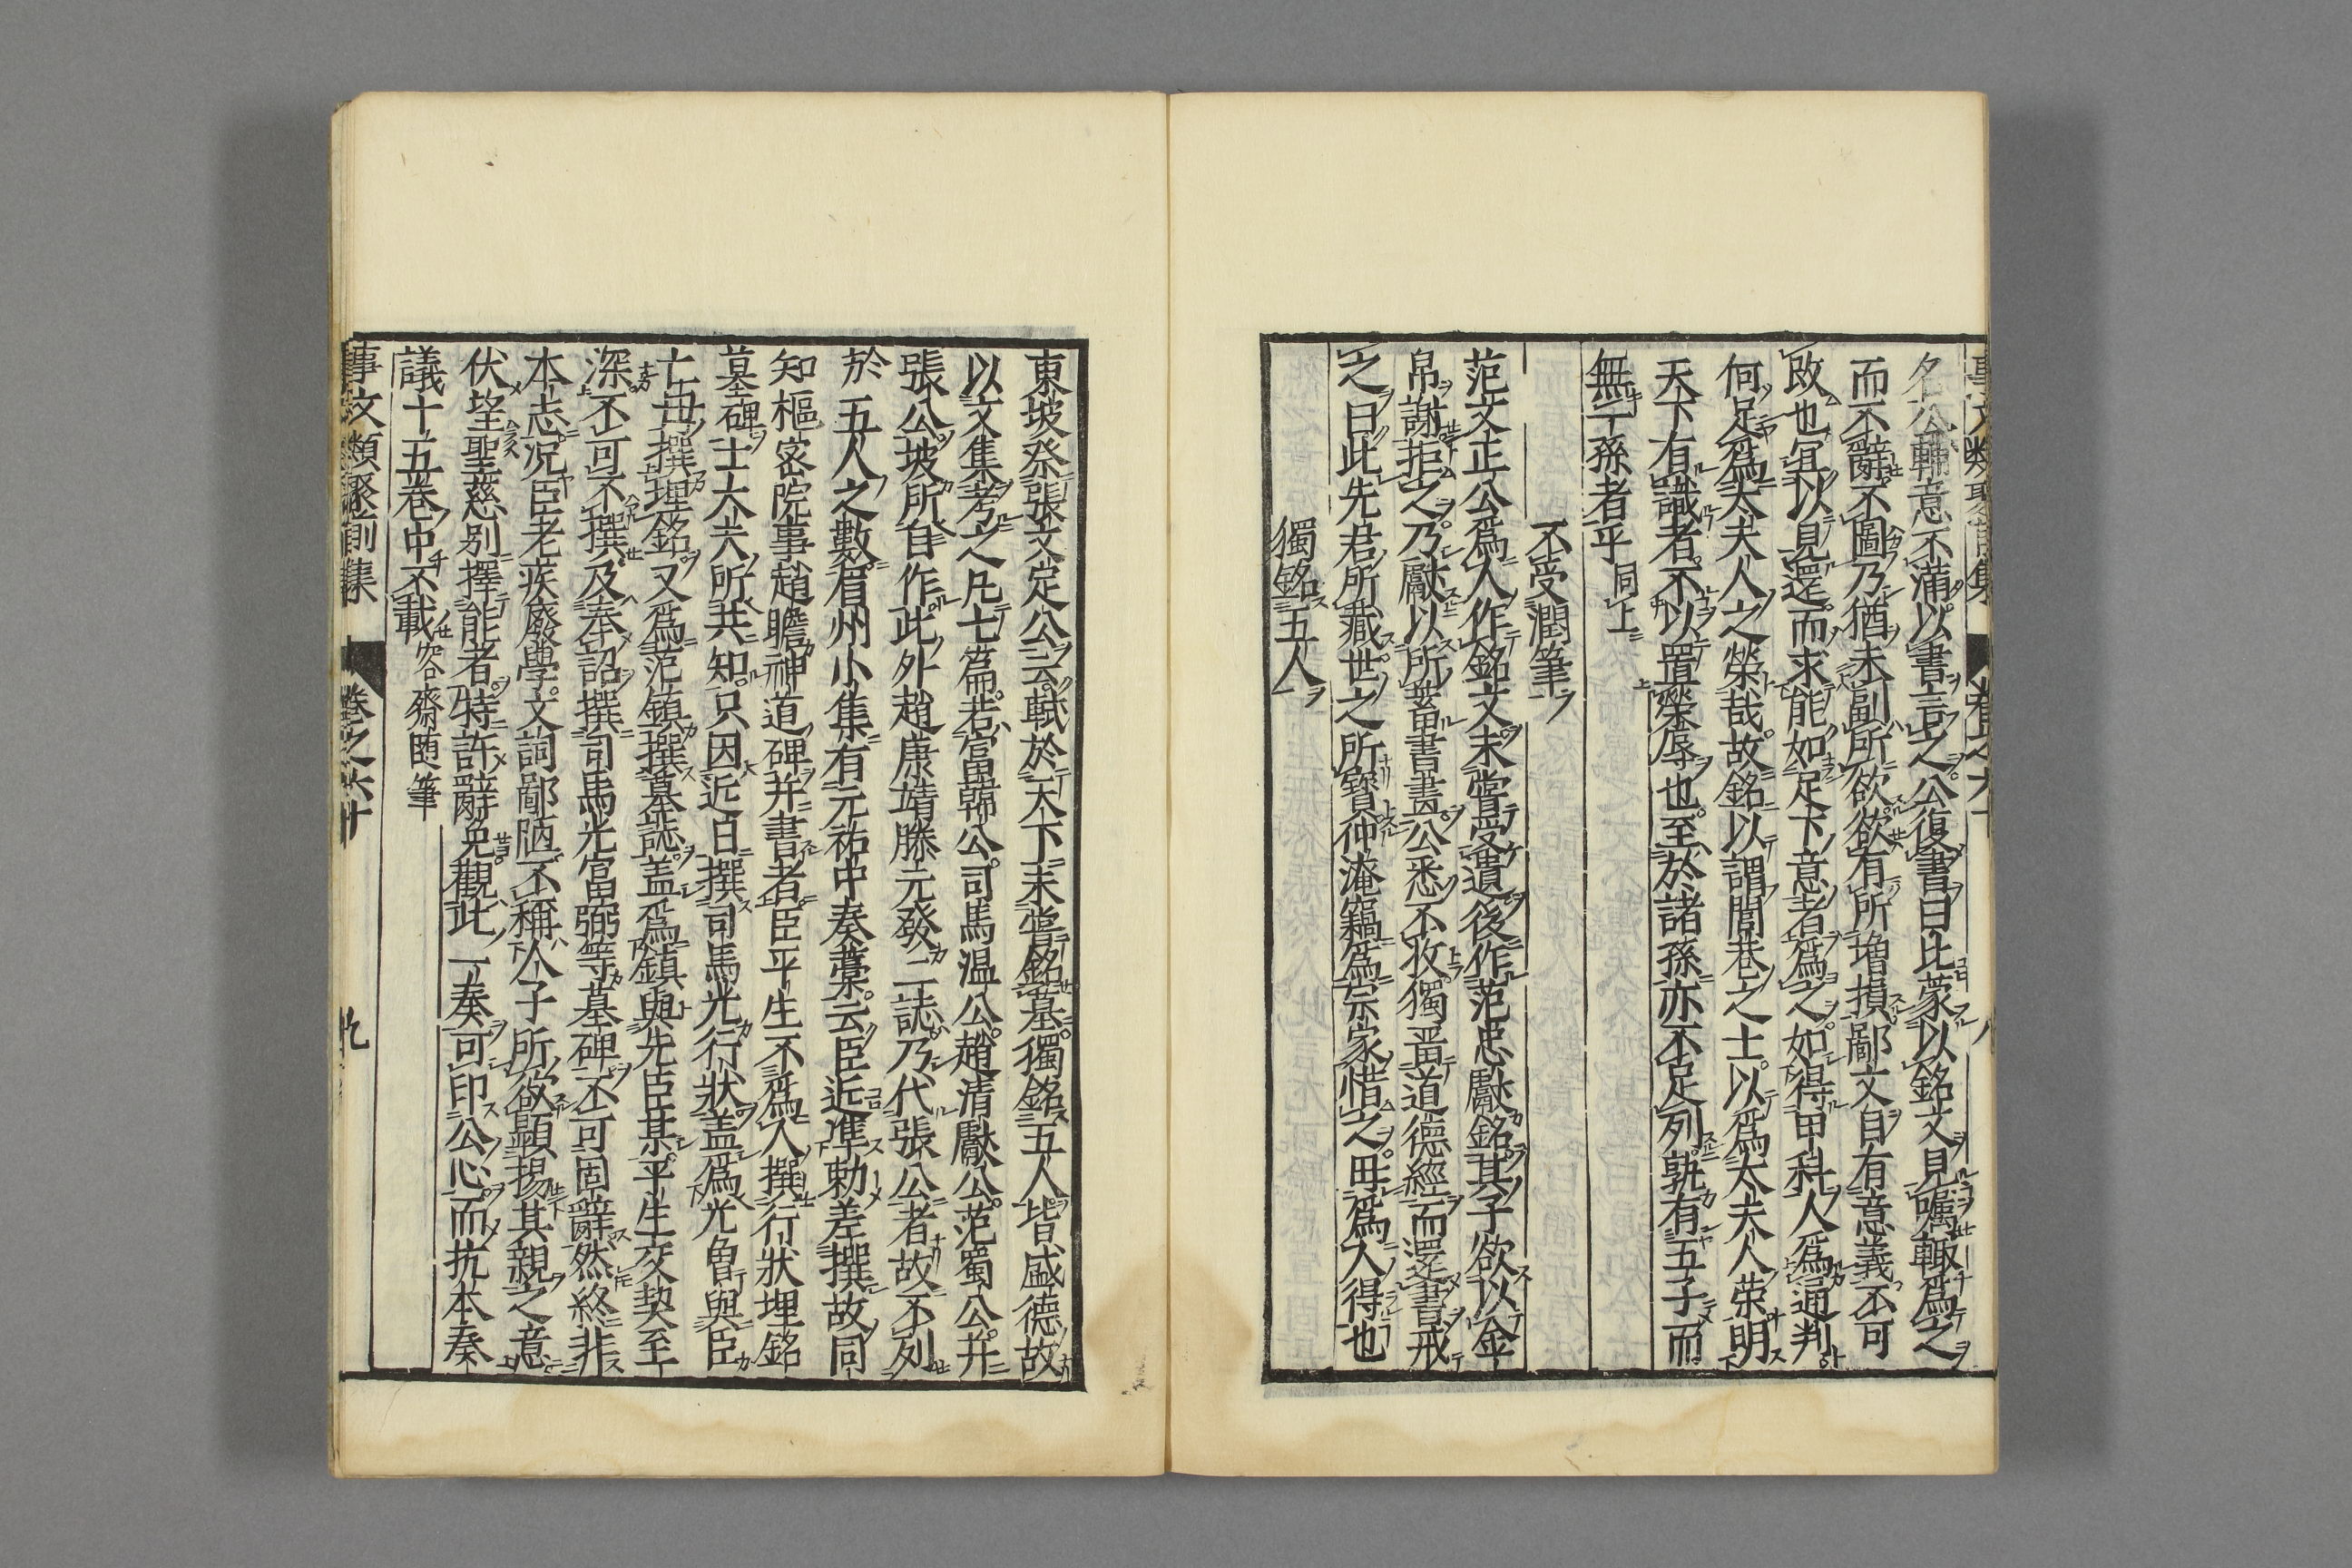 名公輔意不滿以書言之公復書曰比蒙以銘文見囑輙爲之
而不辭不圖乃猶未副所欲欲有所增損鄙文自有意義不可
改也冝以見還而求能如足下意者爲之如得甲科人爲通判
何足爲太夫人之榮哉故銘以謂閭巷之士以爲太夫人荣明
天下有識者不以置榮辱也至於諸孫亦不足列孰有五子而
無七孫者乎同上
不受潤筆
范文正公爲人作銘文未嘗受遺後作范忠獻銘其子欲以金
帛謝拒之乃獻以所蓄書畫公悉不收獨畱道德經而還書戒
之曰此先君所藏世之所寶仲淹竊爲宗家惜之毋爲人得也
獨銘五人
東坡祭張文定公云軾於天下未嘗銘墓獨銘五人皆盛德故
以文集考之凡七篇若富韓公司馬温公趙清獻公范蜀公并
張公坡所自作此外趙康靖滕元發二誌乃代張公者故不列
於五人之數眉州小集有元祐中奏藁云臣近准勅差撰故同
知樞密院事趙瞻神道碑并書者臣平生不爲人撰行狀埋銘
墓碑士大夫所共知只因近日撰司馬光行狀盖爲光曽與臣
亡母撰埋銘又爲范鎮撰墓誌盖爲鎮與先臣某平生交契至
深不可不撰及奉詔撰司馬光富弼等墓碑不可固辭然終非
本志況臣老疾廢學文詞鄙陋不稱人子所欲顯揚其親之意
伏望聖慈別擇能者特許辭免觀此一奏可印公心而抗本奏
議十五巷中不載容齋随筆
事文類聚前集　卷之六十　九